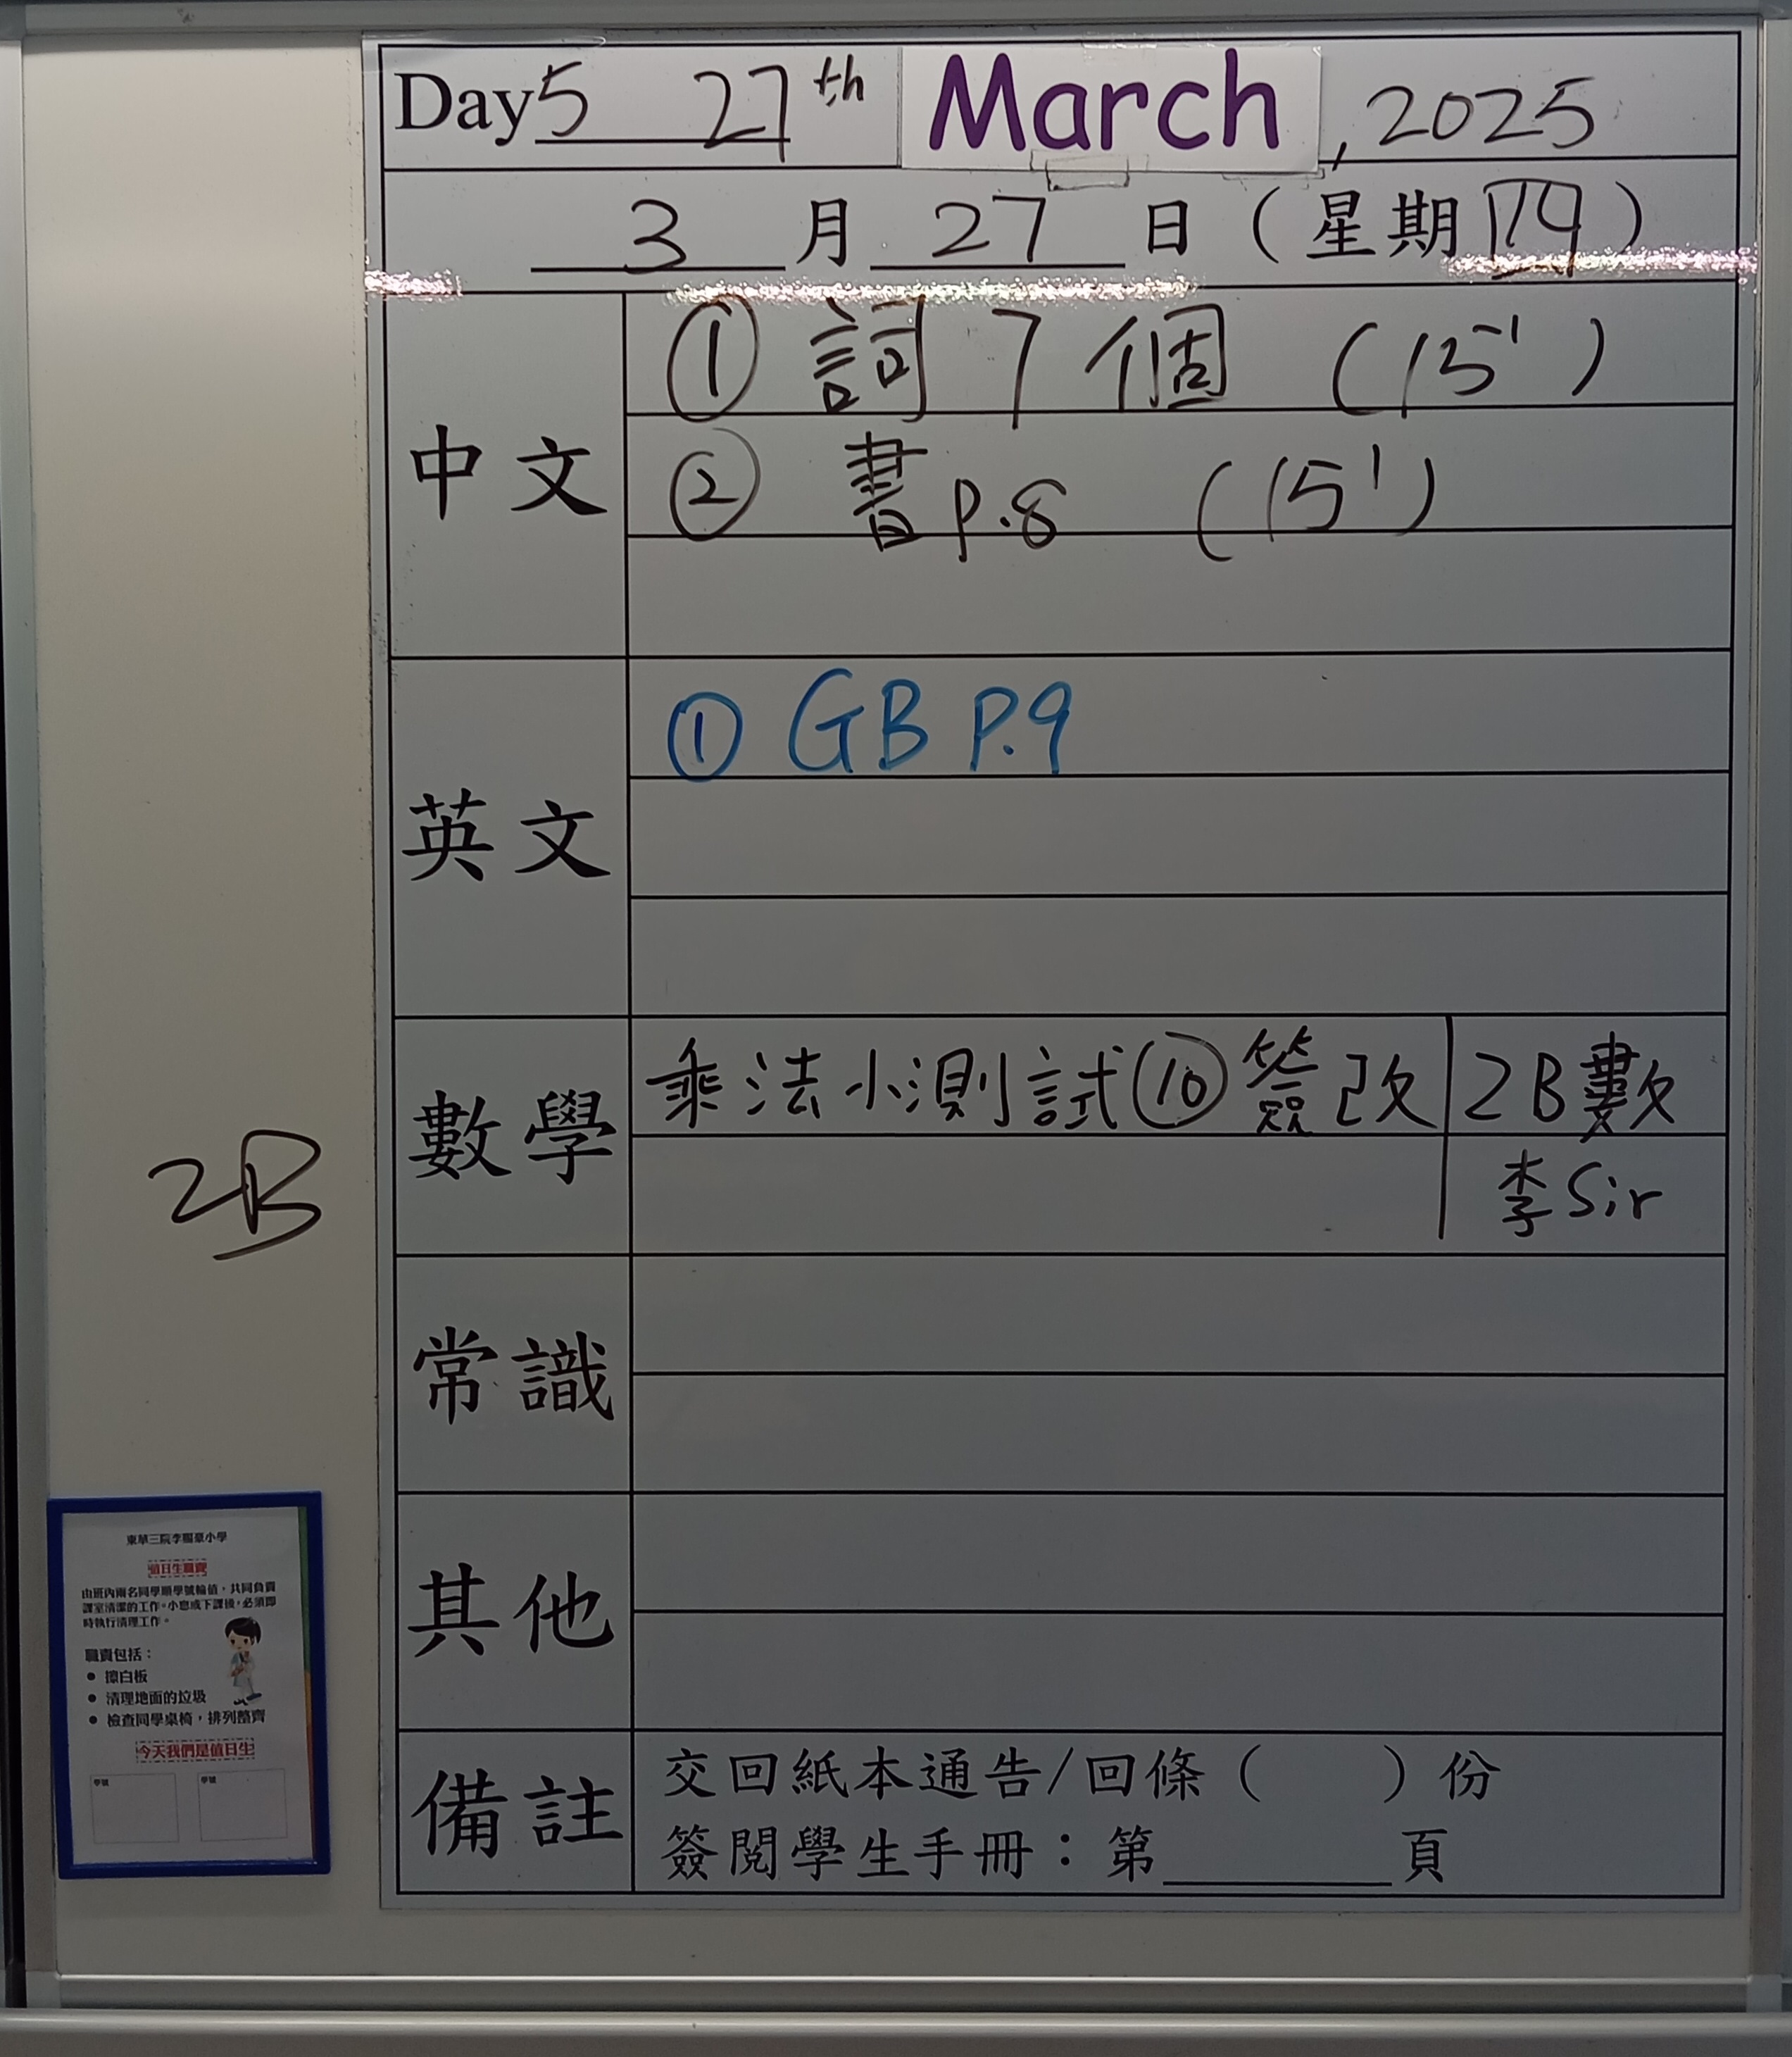 Day 5 27th March, 2025
3 月 27 日 (星期四)
中文
① 詞 7 個 (15')
② 書 p.8 (15')
英文
① GB P.9
數學
乘法小測試⑩簽改 2B數
李Sir
2B
常識
其他
備註
交回紙本通告/回條( )份
簽閱學生手冊:第______頁
東華三院李賜豪小學
值日生職責
由班內兩名同學順學號輪值,共同負責
課室清潔的工作。小息或下課後,必須即
時執行清理工作。
職責包括:
● 擦白板
● 清理地面的垃圾
● 檢查同學桌椅,排列整齊
今天我們是值日生
學號 學號